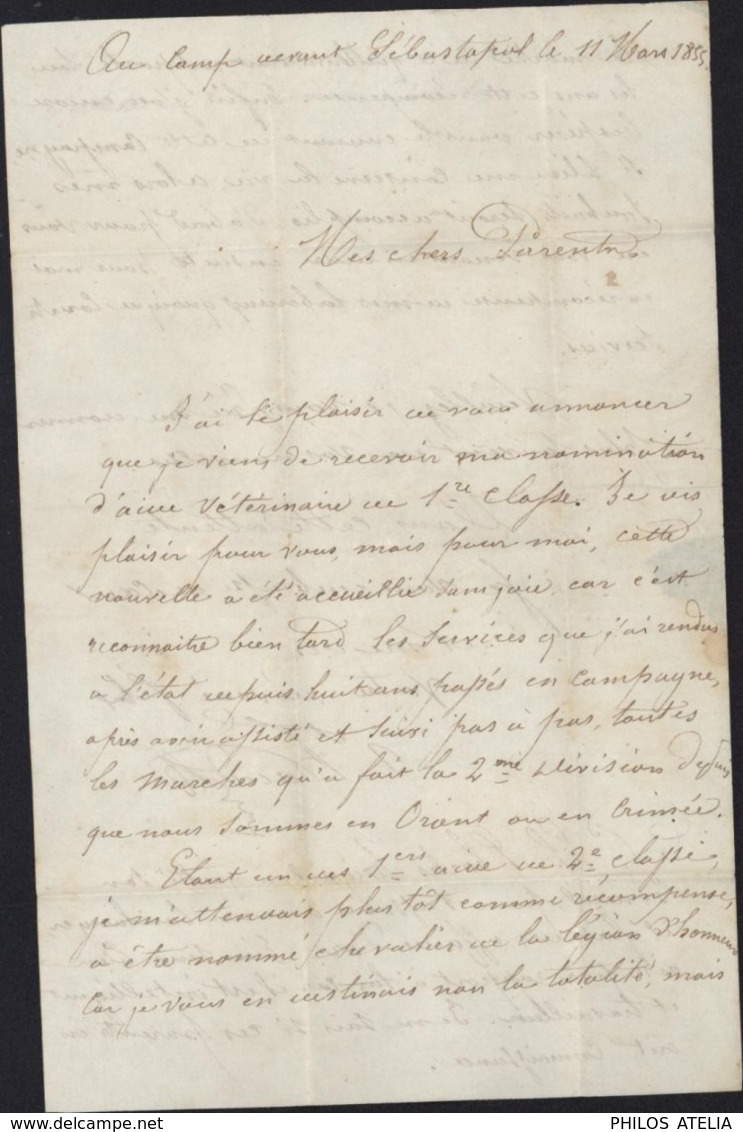 Au Camp devant Sébastopol le 11 Mars 1855.
Mes chers Parents
J'ai le plaisir de vous annoncer
que je viens de recevoir ma nomination
d'aide vétérinaire de 1re Classe. Je dis
plaisir pour vous, mais pour moi, cette
nouvelle a été accueillie sans joie, car c'est
reconnaitre bien tard les services que j'ai rendus
à l'état depuis huit ans passés en Campagne,
après avoir assisté et suivi pas à pas, toutes
les marches qu'a fait la 2me Division depuis
que nous sommes en Orient ou en Crimée.
Etant un des 1ers aide de 2e classe,
je m'attendais plus tôt comme récompense,
à être nommé chevalier de la légion d'honneur
Car je vous en destinais non la totalité, mais
PHILOS ATELIA